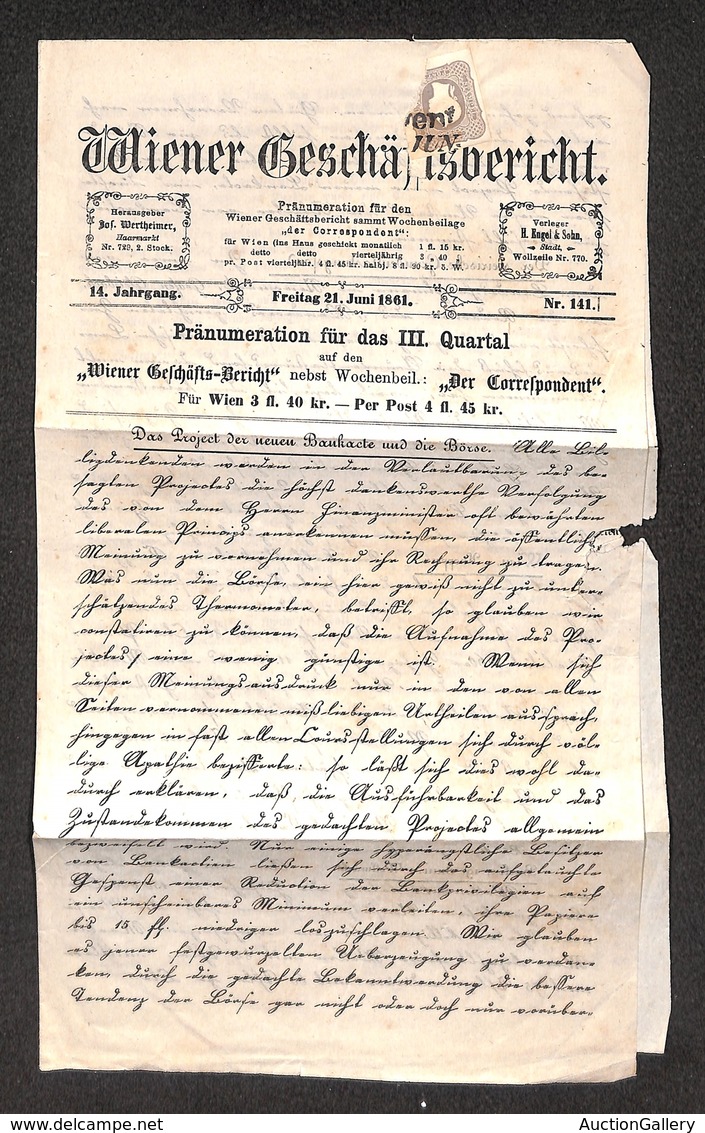 ent
JUN.
Wiener Geschäftsbericht.
Herausgeber
Jos. Wertheimer,
Haarmarkt
Nr. 729, 2. Stock.
Pränumeration für den
Wiener Geschäftsbericht sammt Wochenbeilage
„der Correspondent“:
für Wien (ins Haus geschickt monatlich 1 fl. 15 kr.
detto detto vierteljährig 3 „ 40 „
pr. Post vierteljähr. 4 fl. 45 kr. halbj. 8 fl. 90 kr. ö. W.
Verleger
H. Engel & Sohn,
Stadt,
Wollzeile Nr. 770.
14. Jahrgang.
Freitag 21. Juni 1861.
Nr. 141.
Pränumeration für das III. Quartal
auf den
„Wiener Geschäfts-Bericht“ nebst Wochenbeil.: „Der Correspondent“.
Für Wien 3 fl. 40 kr. — Per Post 4 fl. 45 kr.
Das Project der neuen Bankacte und die Börse. Alle Bil-
ligdenkenden werden in der Verlautberung des be-
sagten Projectes die höchst dankenswerthe Verfolgung
des von dem Herrn Finanzminister oft bewährten
liberalen Princips anerkennen müssen, die öffentliche
Meinung zu vernehmen und ihr Rechnung zu tragen.
Was nun die Börse, ein hier gewiß nicht zu unter-
schätzendes Thermometer, betrifft, so glauben wir
constatiren zu können, daß die Aufnahme des Pro-
jectes eine wenig günstige ist. Wenn sich
dieser Meinungsausdruck nur in den von allen
Seiten vernommenen mißliebigen Urtheilen aussprach,
hingegen in fast allen Coursstellungen sich durch völ-
lige Apathie bezifferte: so läßt sich dies wohl da-
durch erklären, daß die Ausführbarkeit und das
Zustandekommen des gedachten Projectes allgemein
bezweifelt wird. Nur einige hyperängstliche Besitzer
von Bankactien ließen sich durch das aufgetauchte
Gespenst einer Reduction der Bankprivilegien auf
ein unscheinbares Minimum verleiten, ihre Papiere
bis 15 fl. niedriger loszuschlagen. Wir glauben
es jener festgewurzelten Ueberzeugung zu verdan-
ken, durch die gedachte Bekanntwerdung die bessere
Tendenz der Börse gar nicht oder doch nur vorüber-
AuctionGallery